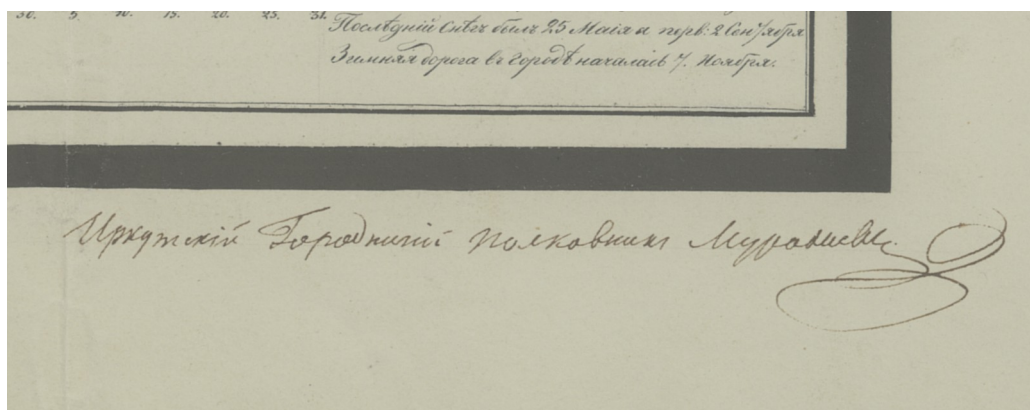 30. 5. 10. 15. 20. 25. 31.
Послѣдній снѣгъ былъ 25 Маія и перв: 2 Сентября
Зимняя дорога въ городѣ началась 7. Ноября.
Иркутскій Городничій полковникъ